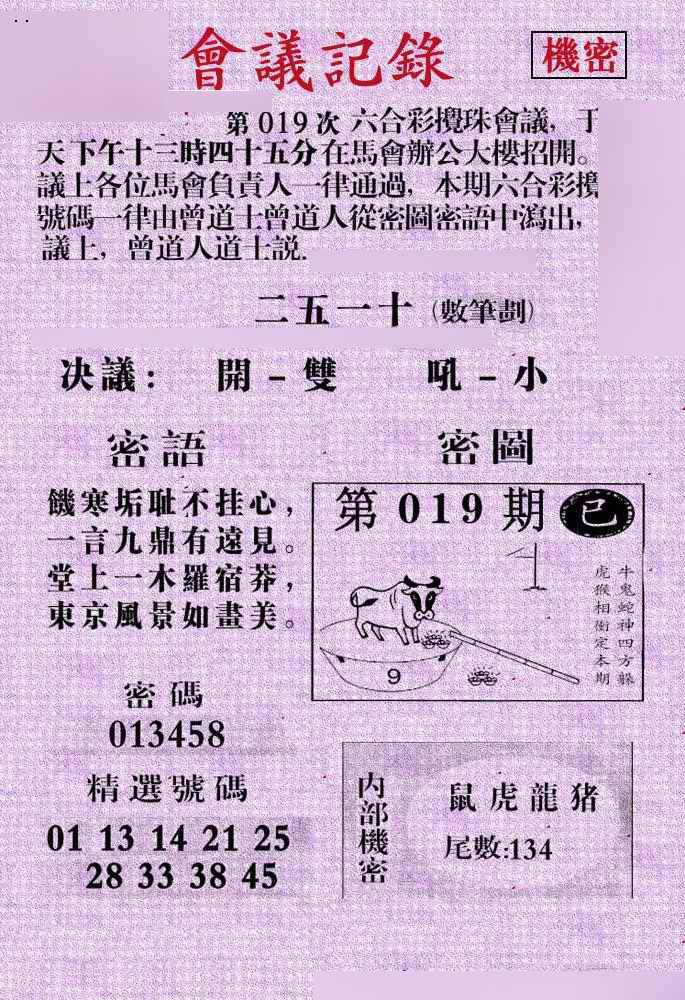 會議記錄
機密
第 019 次 六合彩攪珠會議，于
天下午十三時四十五分在馬會辦公大樓招開。
議上各位馬會負責人一律通過，本期六合彩攪
號碼一律由曾道士曾道人從密圖密語中瀉出，
議上，曾道人道士説.
二五一十（數筆劃）
决議： 開－雙 吼－小
密語
饑寒垢耻不挂心，
一言九鼎有遠見。
堂上一木羅宿莽，
東京風景如畫美。
密圖
第 019 期 已
牛鬼蛇神四方躲
虎猴相衝定本期
9
密碼
013458
精選號碼
01 13 14 21 25
28 33 38 45
内部機密
鼠虎龍猪
尾數:134